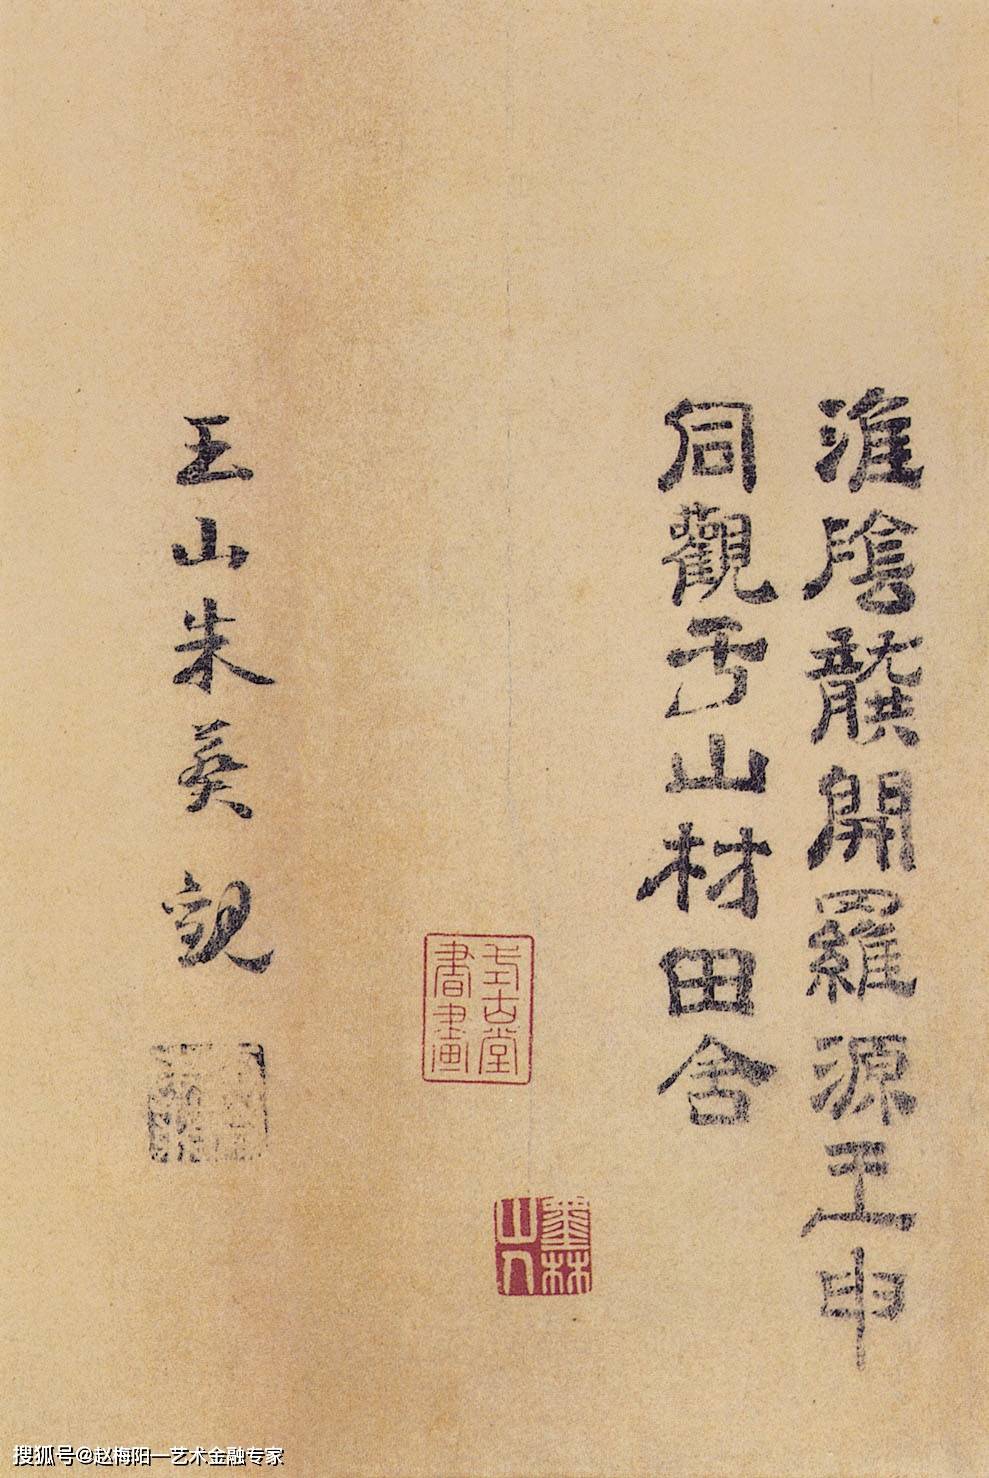 淮陰龔開羅源王申
同觀于山村田舍
式古堂
書畫
墨林
山人
玉山朱葵觀
搜狐号@赵梅阳一艺术金融专家